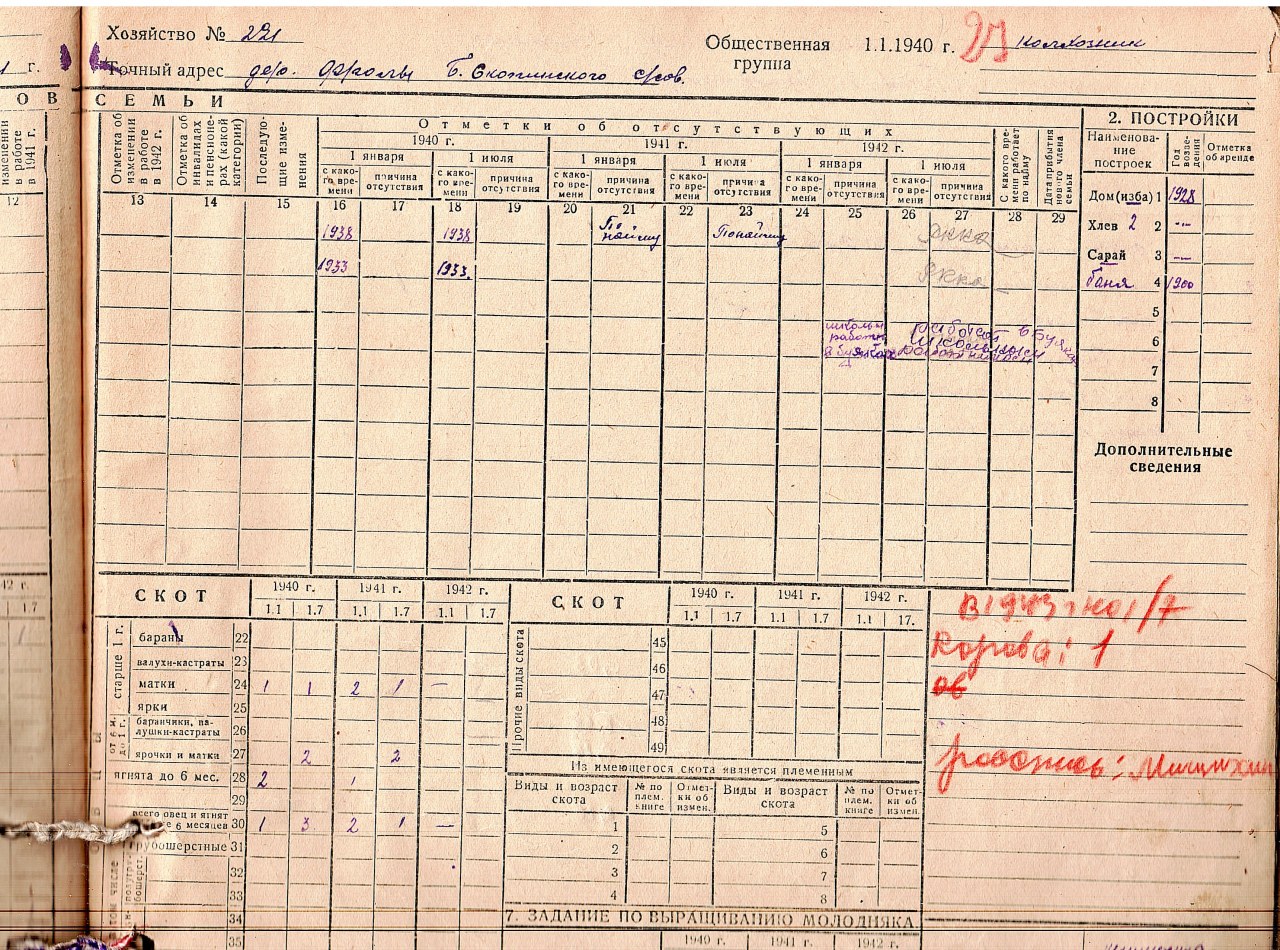 Хозяйство № 221
Общественная группа 1.1.1940 г. колхозник
Точный адрес дер. Фролы Б. Скопинского с/сов.
1 г.
О В
С Е М Ь И
изменении в работе в 1941 г.
Отметка об изменении в работе в 1942 г.
Отметка об инвалидах и пенсионерах (какой категории)
Последующие изменения
Отметки об отсутствующих
1940 г. 1941 г. 1942 г.
1 января 1 июля 1 января 1 июля 1 января 1 июля
с какого времени причина отсутствия с какого времени причина отсутствия с какого времени причина отсутствия с какого времени причина отсутствия с какого времени причина отсутствия с какого времени причина отсутствия
С какого времени работает по найму
Дата прибытия нового члена семьи
12 13 14 15 16 17 18 19 20 21 22 23 24 25 26 27 28 29
1938 1938 По найму По найму РККА
1933 1933. РККА
школьн работ
2. ПОСТРОЙКИ
Наименование построек Год возведения Отметка об аренде
Дом (изба) 1 1928
Хлев 2 2 -"-
Сарай 3 -"-
баня 4 1900
5
6
7
8
Дополнительные сведения
42 г.
1.7
СКОТ 1940 г. 1941 г. 1942 г.
1.1 1.7 1.1 1.7 1.1 1.7
старше 1 г.
бараны 22
валухи-кастраты 23
матки 24 1 1 2 1 —
ярки 25
от 6 м. до 1 г.
баранчики, валушки-кастраты 26
ярочки и матки 27 2 2
ягнята до 6 мес. 28 2 1
29
всего овец и ягнят 6 месяцев 30 1 3 2 1 —
грубошерстные 31
32
33
34
35
СКОТ 1940 г. 1941 г. 1942 г.
1.1 1.7 1.1 1.7 1.1 17.
Прочие виды скота
45
46
47
48
49
Из имеющегося скота является племенным
Виды и возраст скота № по плем. книге Отметки об измен. Виды и возраст скота № по плем. книге Отметки об измен.
1 5
2 6
3 7
4 8
7. ЗАДАНИЕ ПО ВЫРАЩИВАНИЮ МОЛОДНЯКА
1940 г. 1941 г. 1942 г.
В 1943 г на 1/7
Корова: 1
ов
роспись: